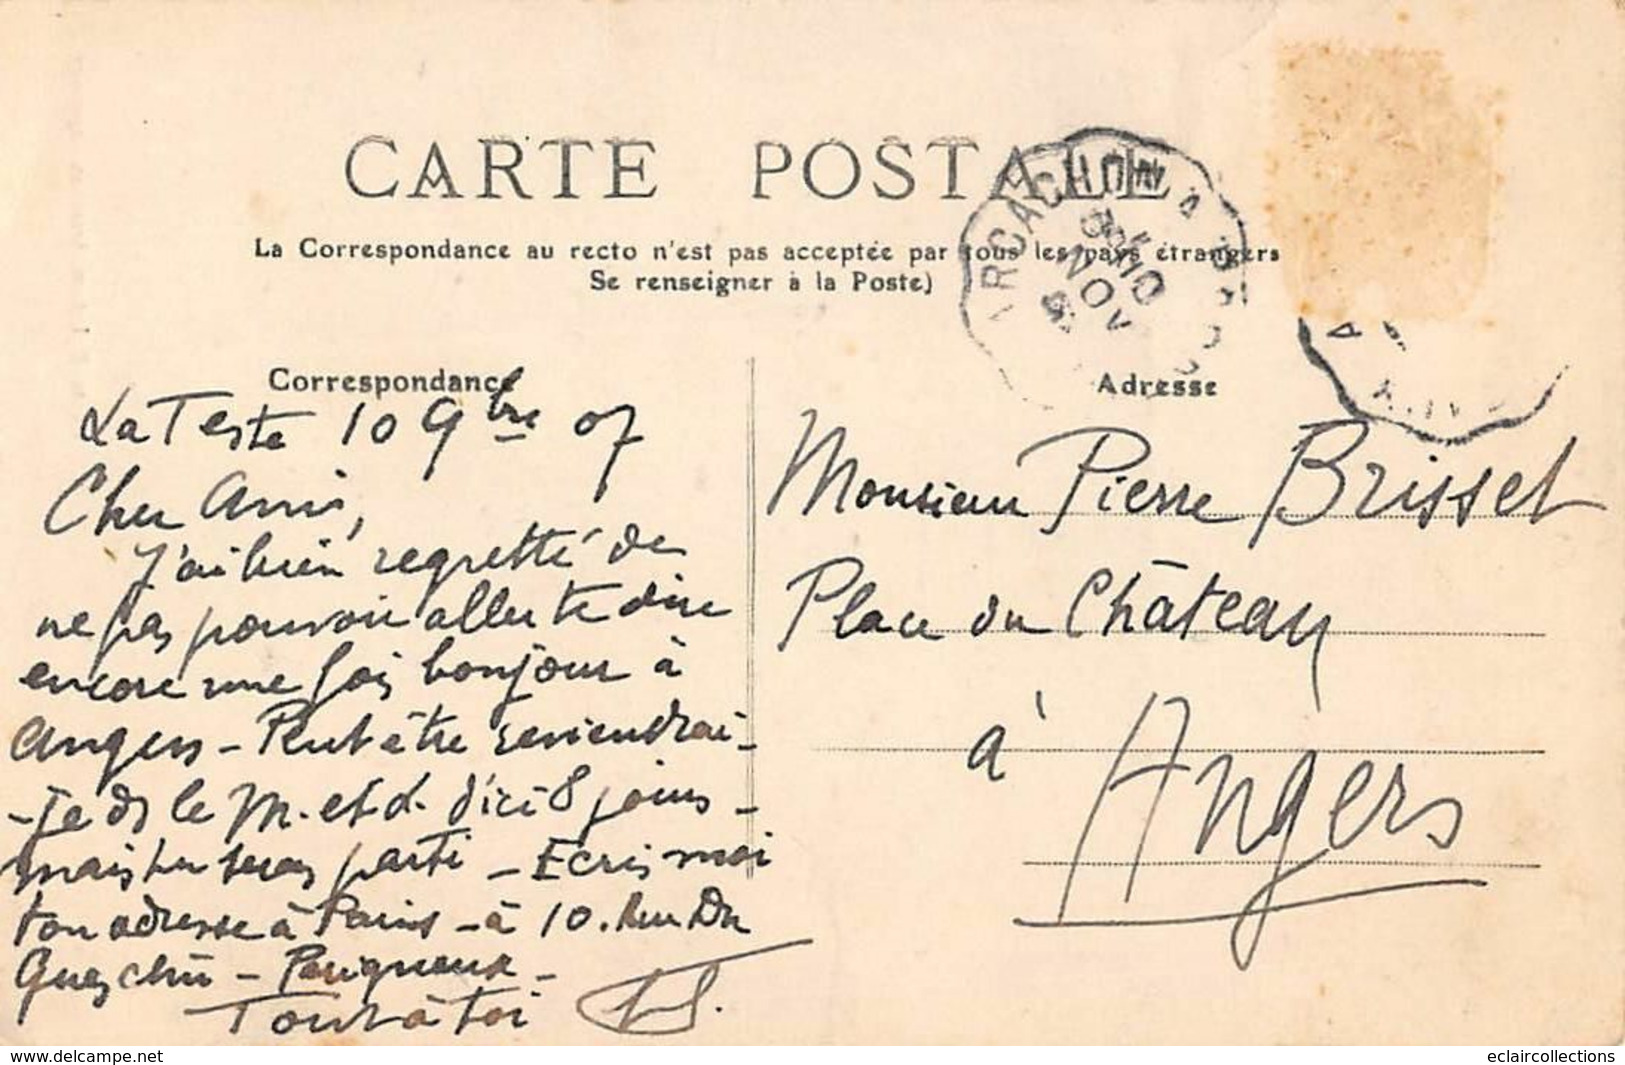 CARTE POSTALE
La Correspondance au recto n'est pas acceptée par tous les pays étrangers
Se renseigner à la Poste)
ARCACHON A
10
NOV
Correspondance
La Teste 10 9bre 07
Cher Ami,
J'ai bien regretté de
ne pas pouvoir aller te dire
encore une fois bonjour à
Angers - Peut être reviendrai-
- je ds le M. et L. d'ici 8 jours -
mais tu seras parti - Ecris moi
ton adresse à Paris - à 10. Rue Du
Guesclin - Périgueux -
Tout à toi
Adresse
Monsieur Pierre Brisset
Place du Château
à
Angers
www.delcampe.net
eclaircollections